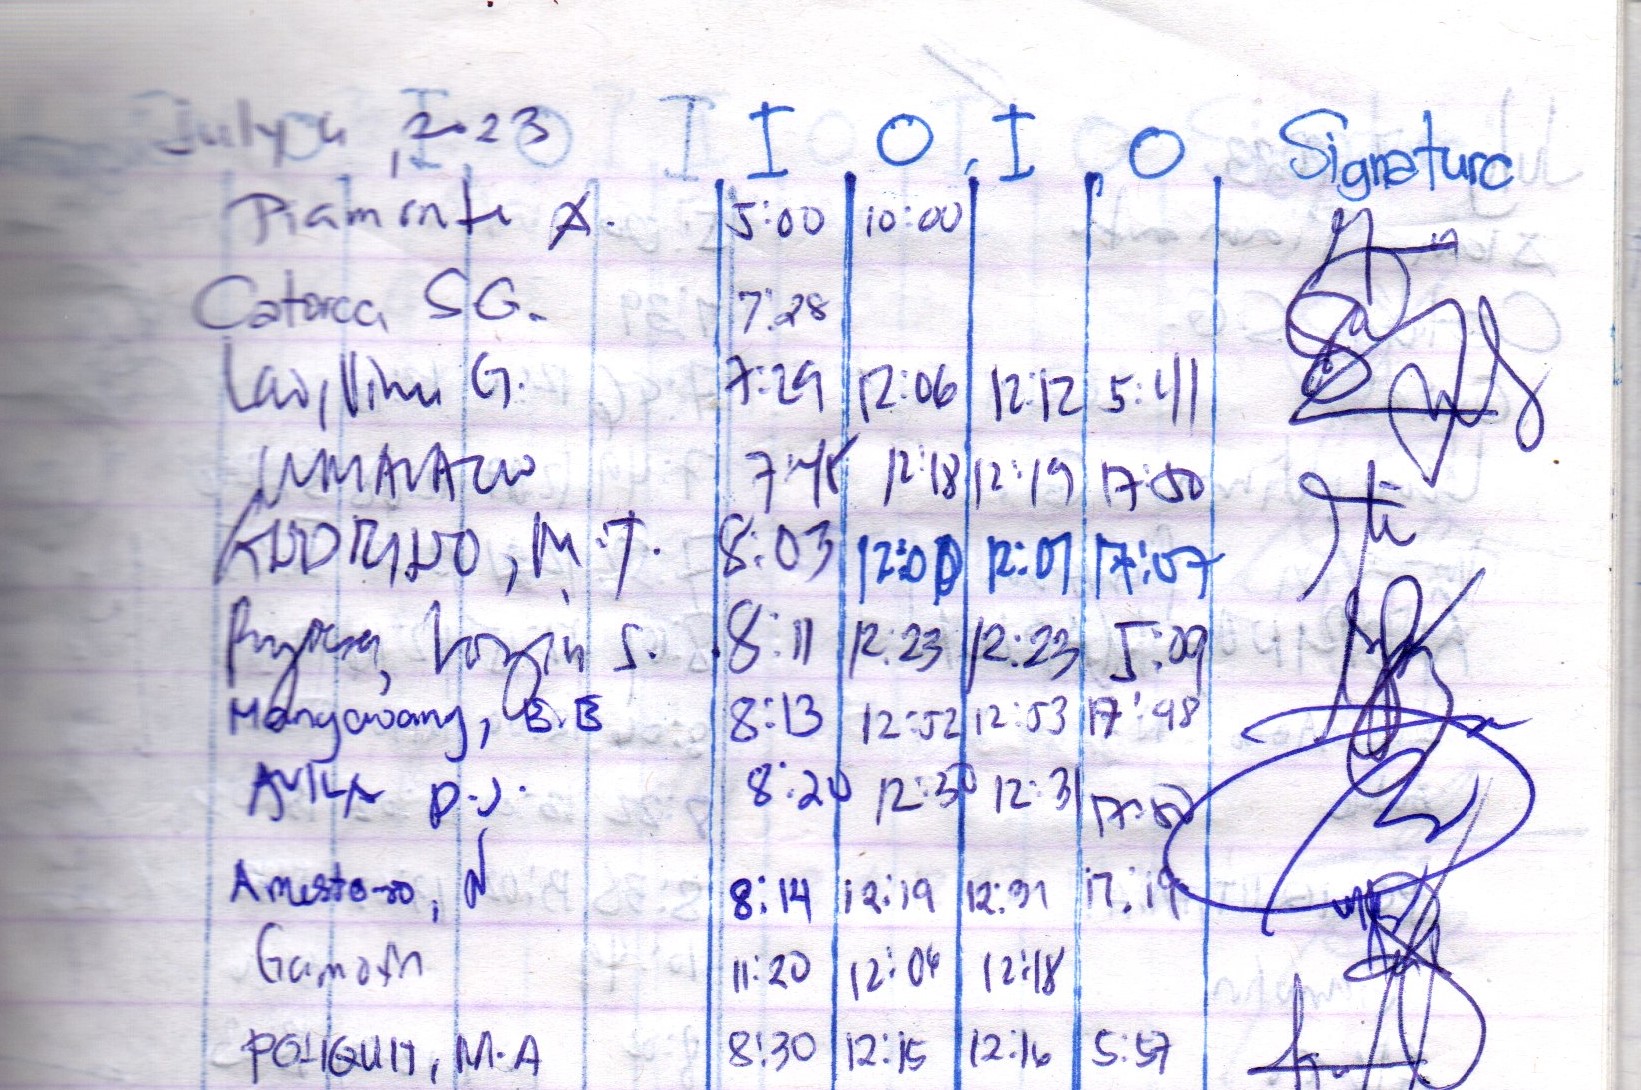 July 4, 2023 I O I O Signature
Piamonte A. 5:00 10:00
Catorca SG. 7:28
G. 7:29 12:06 12:12 5:41
7:48 12:18 12:19 17:50
M.T. 8:03 12:00 12:01 17:07
S. 8:11 12:23 12:23 5:09
Mangawang, B.B 8:13 12:52 12:53 17:48
AVILA P.J. 8:20 12:30 12:31 17:50
Amestoso, N 8:14 12:19 12:31 17:19
Gamosn 11:20 12:04 12:18
POLIQUIT, M.A 8:30 12:15 12:16 5:57